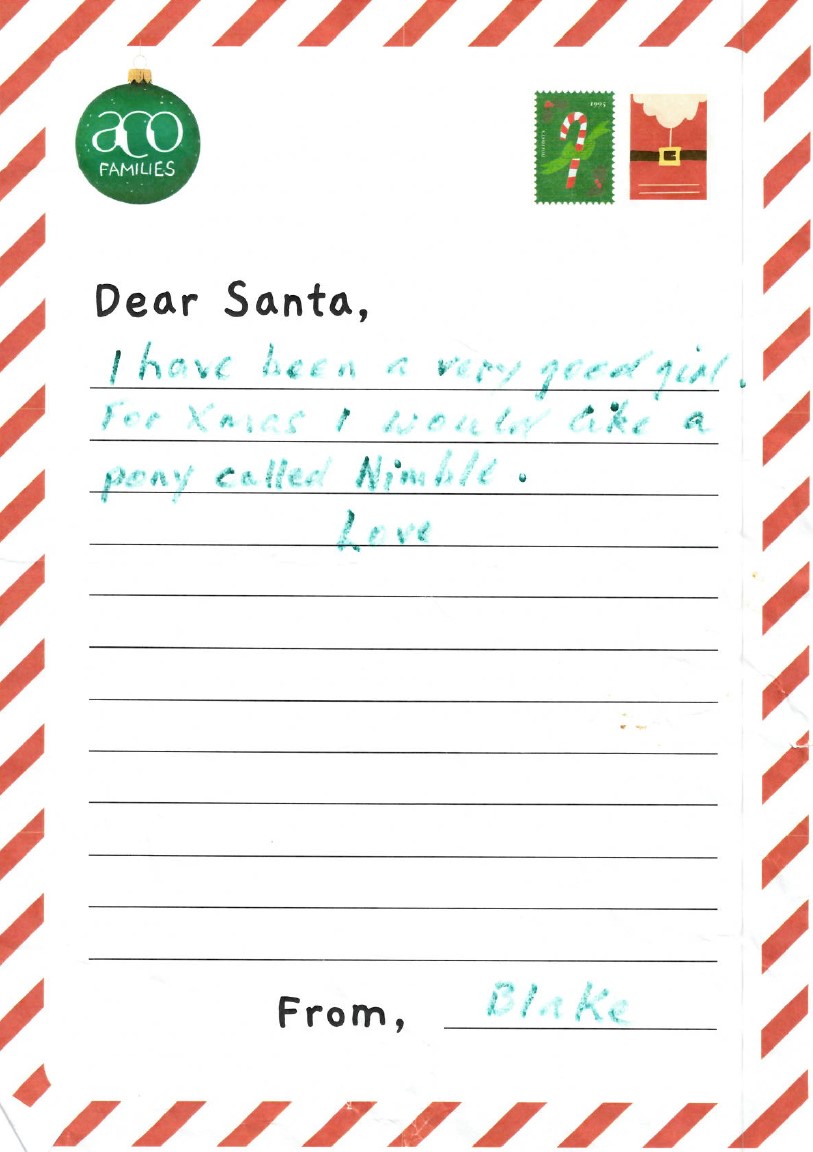 aco
FAMILIES
1995
Dear Santa,
I have been a very good girl.
For Xmas I would like a
pony called Nimble.
Love
From, Blake